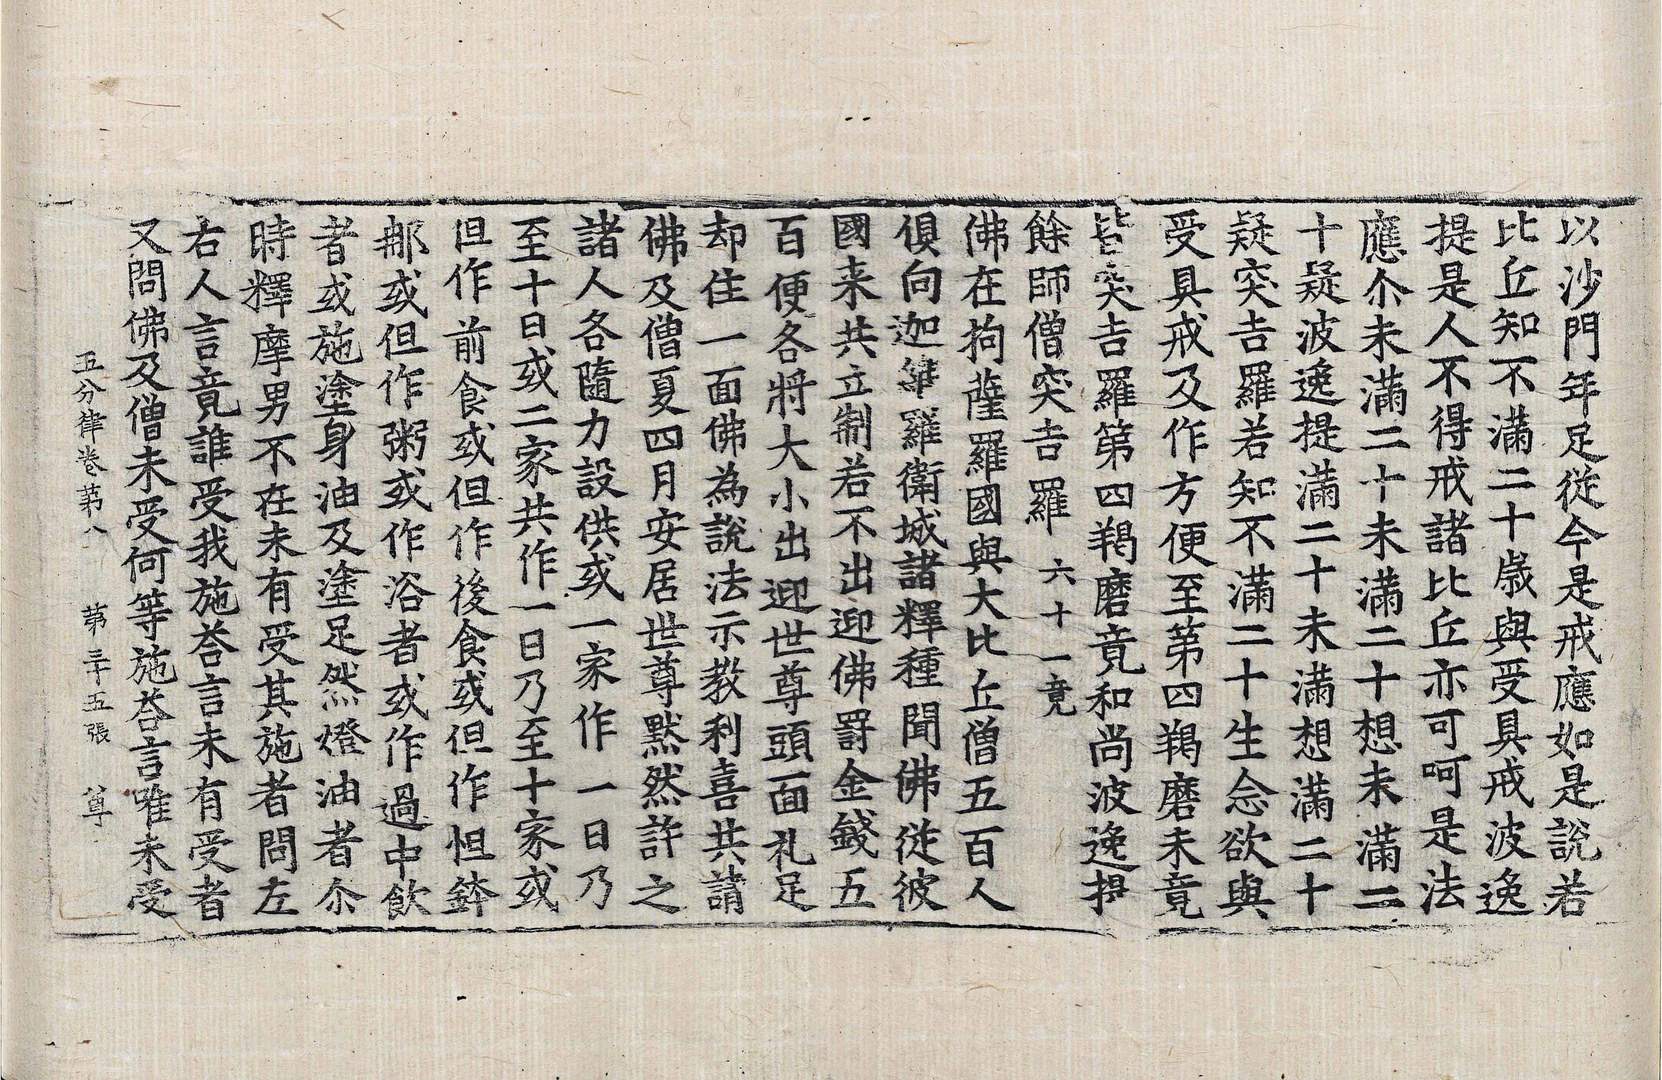 以沙門年足從今是戒應如是說若
比丘知不滿二十歲與受具戒波逸
提是人不得戒諸比丘亦可呵是法
應尒未滿二十未滿二十想未滿二
十疑波逸提滿二十未滿想滿二十
疑突吉羅若知不滿二十生念欲與
受具戒及作方便至第四羯磨未竟
皆突吉羅第四羯磨竟和尚波逸提
餘師僧突吉羅 六十一竟
佛在拘薩羅國與大比丘僧五百人
俱向迦維羅衛城諸釋種聞佛從彼
國来共立制若不出迎佛罸金錢五
百便各將大小出迎世尊頭面礼足
却住一面佛為說法示教利喜共請
佛及僧夏四月安居世尊默然許之
諸人各隨力設供或一家作一日乃
至十日或二家共作一日乃至十家或
但作前食或但作後食或但作怛鉢
那或但作粥或作浴者或作過中飲
者或施塗身油及塗足然燈油者尒
時釋摩男不在未有受其施者問左
右人言竟誰受我施荅言未有受者
又問佛及僧未受何等施荅言唯未受
五分律卷第八 第三十五張 尊